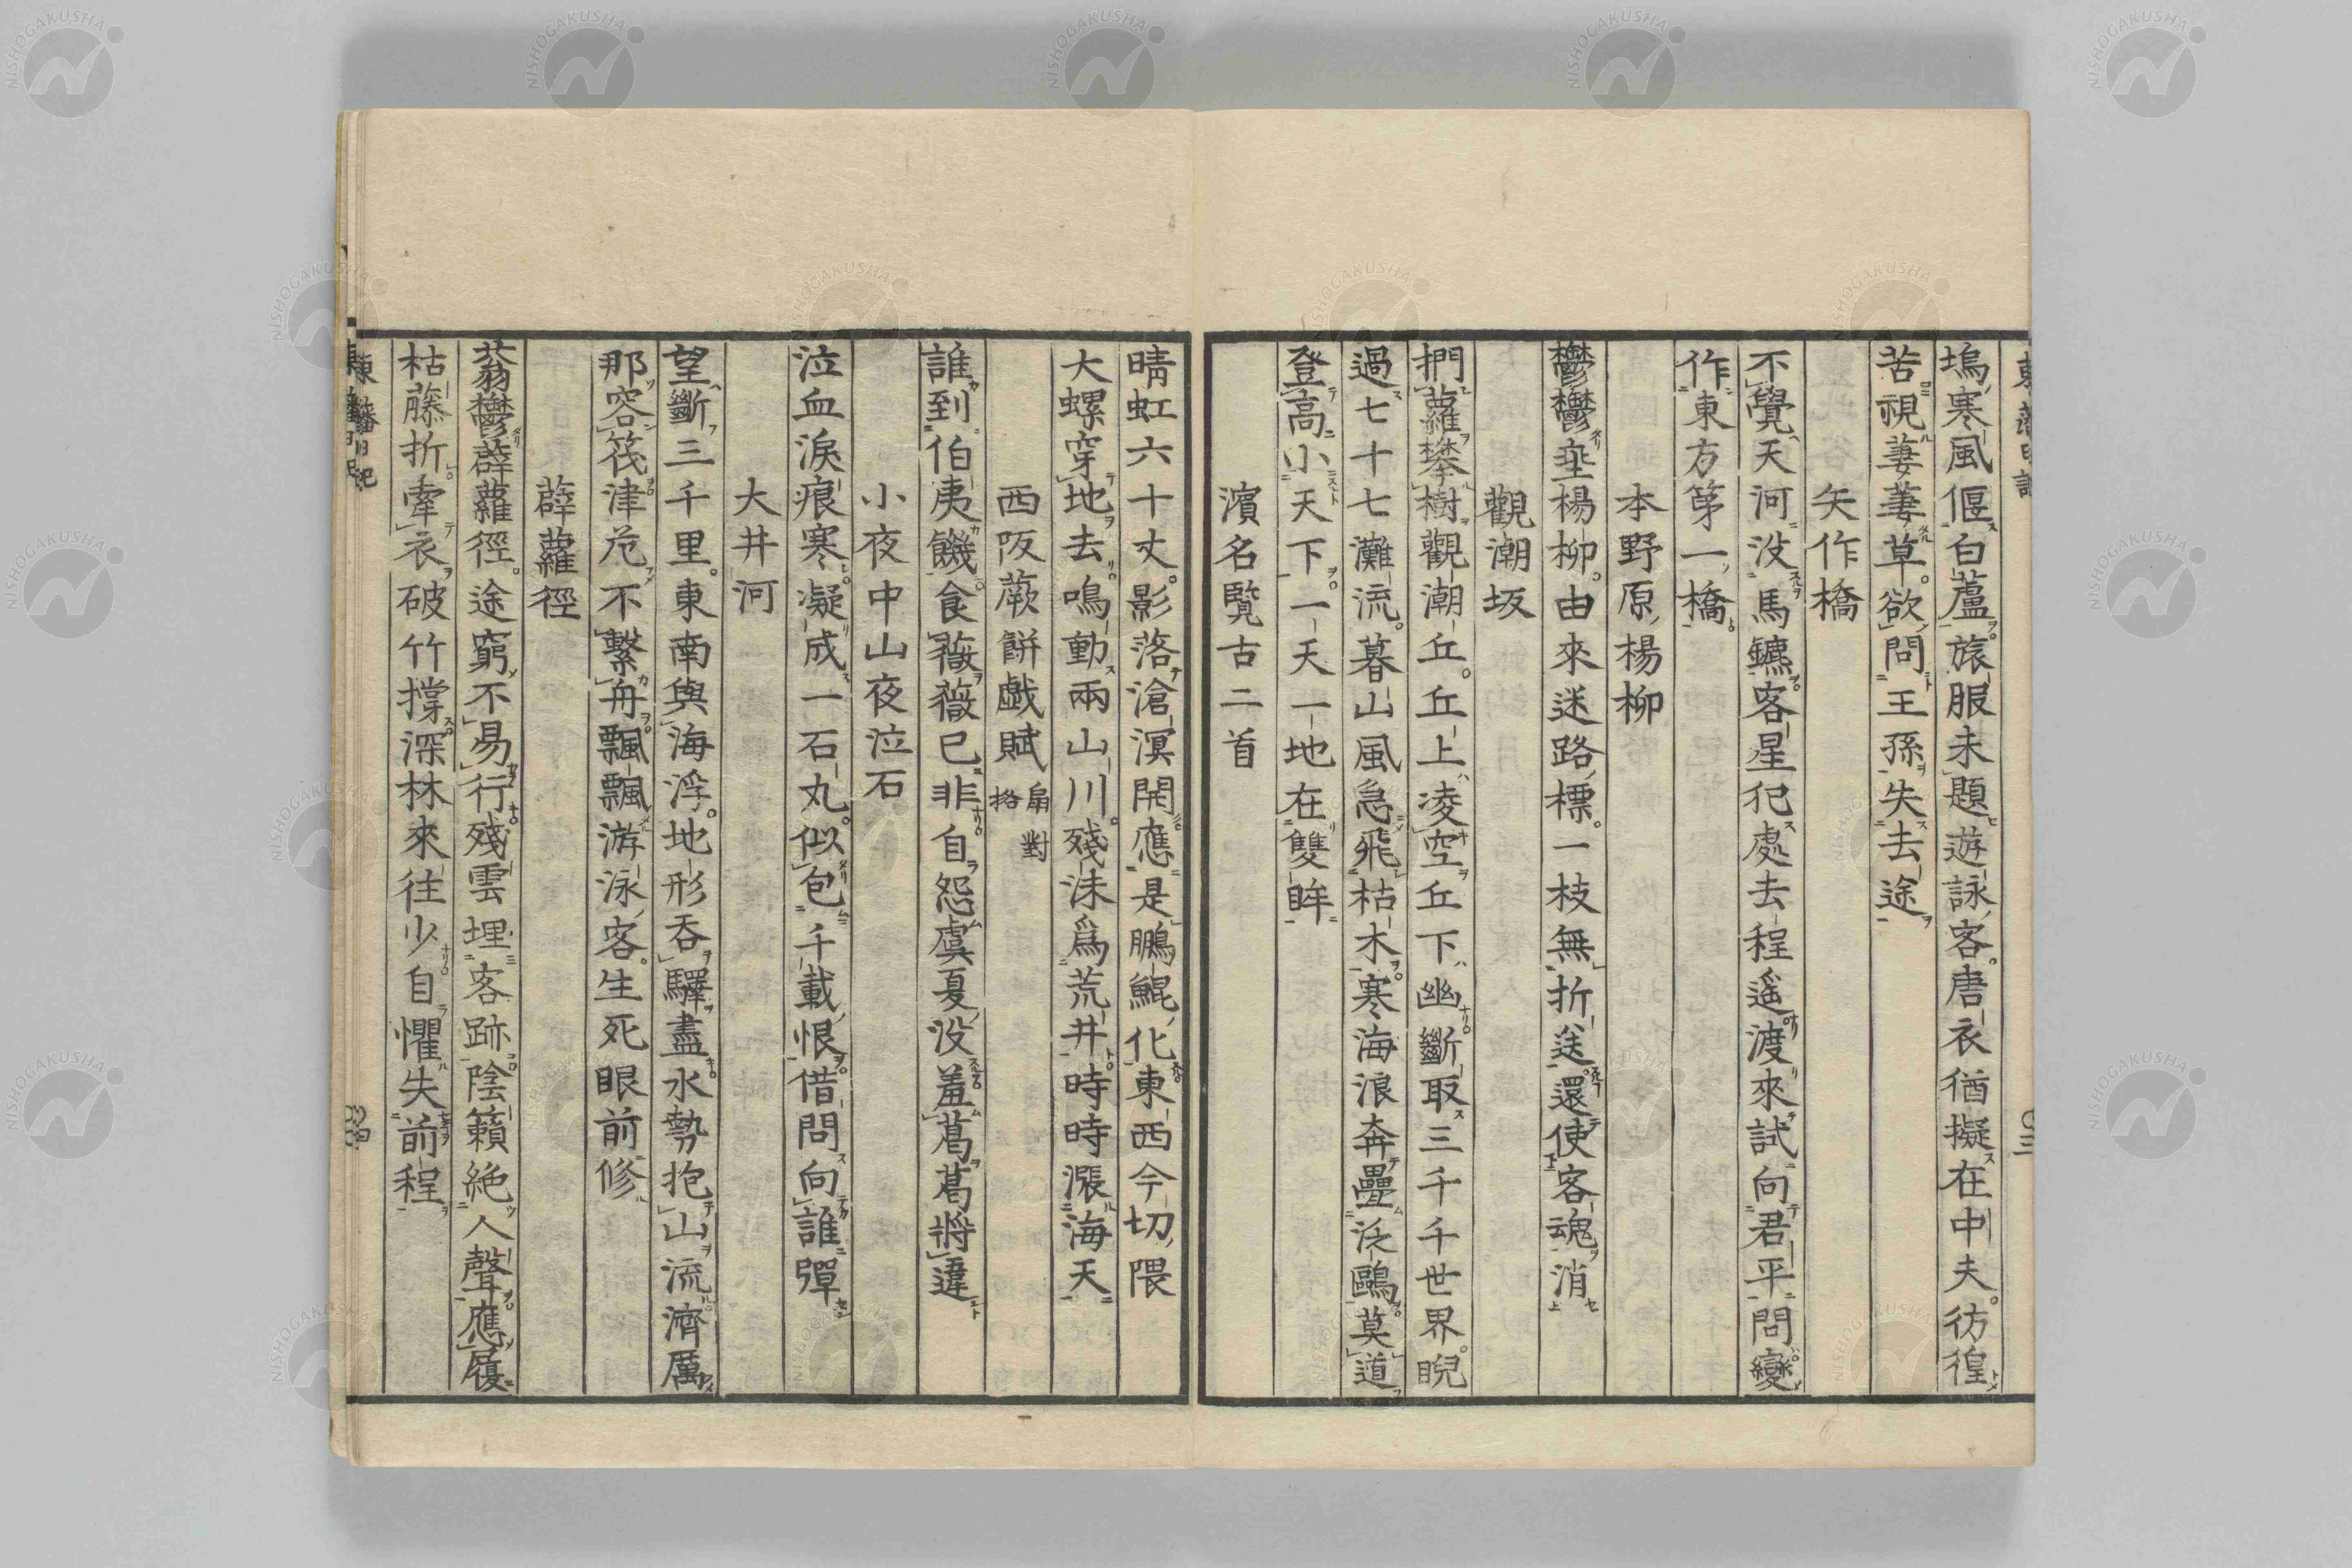 塢寒風偃白蘆旅服未題遊詠客唐衣猶擬在中夫彷徨
苦視萋萋草欲問王孫失去途
矢作橋
不覺天河沒馬鑣客星犯處去程遙渡來試向君平問變
作東方第一橋
本野原楊柳
鬱鬱埀楊柳由來迷路標一枝無折送還使客魂消
觀潮坂
捫蘿攀樹觀潮丘丘上凌空丘下幽斷取三千千世界睨
過七十七灘流暮山風急飛枯木寒海浪奔疊泛鷗莫道
登高小天下一天一地在雙眸
濱名覽古二首
晴虹六十丈影落滄溟開應是鵬鯤化東西今切隈
大螺穿地去鳴動兩山川殘沫爲荒井時時漲海天
西阪蕨餅戯賦 扇對格
誰到伯夷饑食薇薇已非自怨虞夏没羞葛葛將違
小夜中山夜泣石
泣血淚痕寒凝成一石丸似包千載恨借問向誰彈
大井河
望斷三千里東南與海浮地形吞驛盡水勢抱山流濟厲
那容筏津危不繫舟飄飄游泳客生死眼前修
薜蘿徑
蓊鬱薜蘿徑途窮不易行殘雲埋客跡陰籟絶人聲應履
枯藤折牽衣破竹撑深林來往少自懼失前程